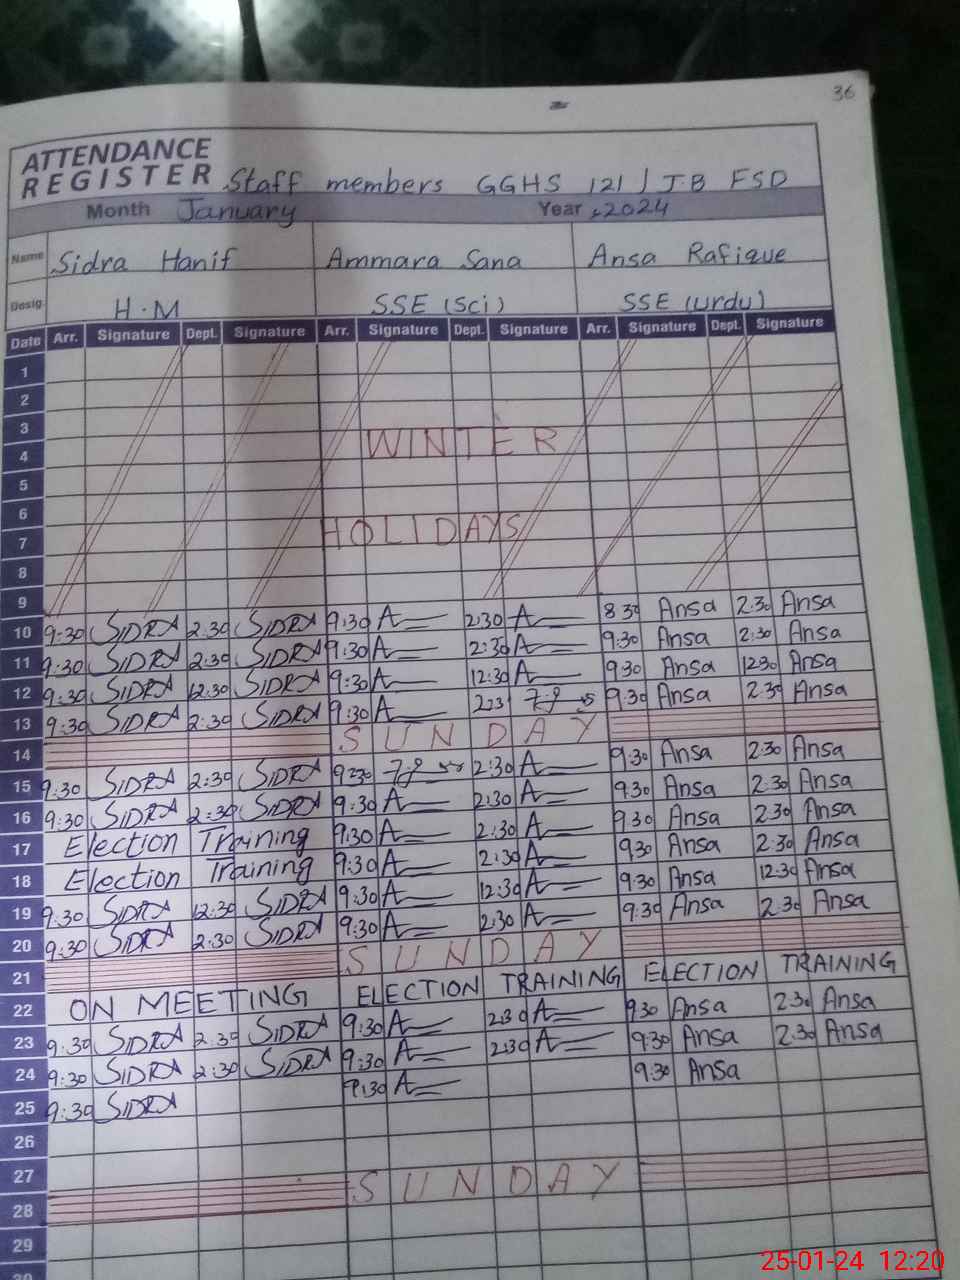 36
ATTENDANCE
REGISTER Staff members GGHS 121/J.B FSD
Month January Year ,2024
Name Sidra Hanif Ammara Sana Ansa Rafique
Desig. H.M SSE (Sci) SSE (urdu)
Date Arr. Signature Dept. Signature Arr. Signature Dept. Signature Arr. Signature Dept. Signature
1
2
3 WINTER
4
5
6 HOLIDAYS
7
8
9
10 9:30 SIDRA 2:30 SIDRA 9:30 A 2:30 A 8:30 Ansa 2:30 Ansa
11 9:30 SIDRA 2:30 SIDRA 9:30 A 2:30 A 9:30 Ansa 2:30 Ansa
12 9:30 SIDRA 12:30 SIDRA 9:30 A 12:30 A 9:30 Ansa 12:30 Ansa
13 9:30 SIDRA 2:30 SIDRA 9:30 A 9:30 Ansa 2:30 Ansa
14 SUNDAY
15 9:30 SIDRA 2:30 SIDRA 2:30 A 9:30 Ansa 2:30 Ansa
16 9:30 SIDRA 2:30 SIDRA 9:30 A 2:30 A 9:30 Ansa 2:30 Ansa
17 Election Training 9:30 A 2:30 A 9:30 Ansa 2:30 Ansa
18 Election Training 9:30 A 2:30 A 9:30 Ansa 2:30 Ansa
19 9:30 SIDRA 12:30 SIDRA 9:30 A 12:30 A 9:30 Ansa 12:30 Ansa
20 9:30 SIDRA 2:30 SIDRA 9:30 A 2:30 A 9:30 Ansa 2:30 Ansa
21 SUNDAY
22 ON MEETING ELECTION TRAINING ELECTION TRAINING
23 9:30 SIDRA 2:30 SIDRA 9:30 A 2:30 A 9:30 Ansa 2:30 Ansa
24 9:30 SIDRA 2:30 SIDRA 9:30 A 2:30 A 9:30 Ansa 2:30 Ansa
25 9:30 SIDRA 9:30 A 9:30 Ansa
26
27
28 SUNDAY
29
30
25-01-24 12:20